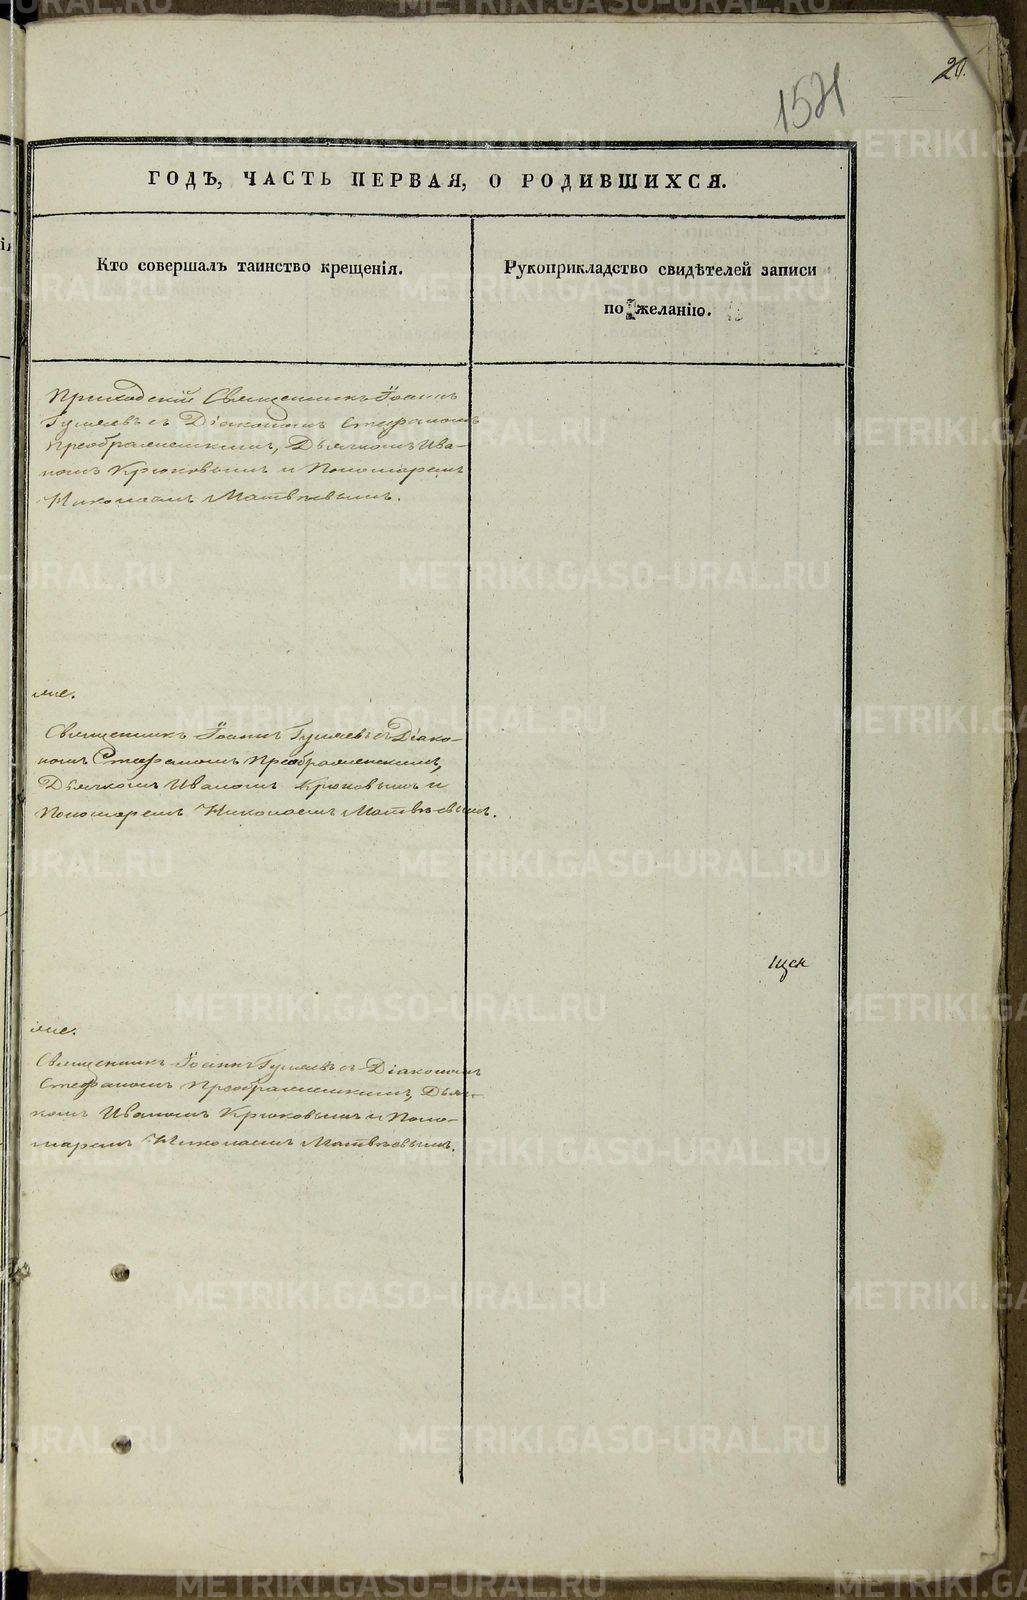 20.
ГОДЪ, ЧАСТЬ ПЕРВАЯ, О РОДИВШИХСЯ.
Кто совершалъ таинство крещенія.
Рукоприкладство свидѣтелей записи
по желанію.
Приходскій Священникъ Іоаннъ
Гуляевъ съ Діакономъ Стефаномъ
Преображенскимъ, Дьячкомъ Ива-
номъ Крюковымъ и Пономаремъ
Николаемъ Матвѣевымъ.
Священникъ Іоаннъ Гуляевъ съ Діако-
номъ Стефаномъ Преображенскимъ,
Дьячкомъ Иваномъ Крюковымъ и
Пономаремъ Николаемъ Матвѣевымъ.
Священникъ Іоаннъ Гуляевъ съ Діакономъ
Стефаномъ Преображенскимъ, Дьяч-
комъ Иваномъ Крюковымъ и Поно-
маремъ Николаемъ Матвѣевымъ.
METRIKI.GASO-URAL.RU